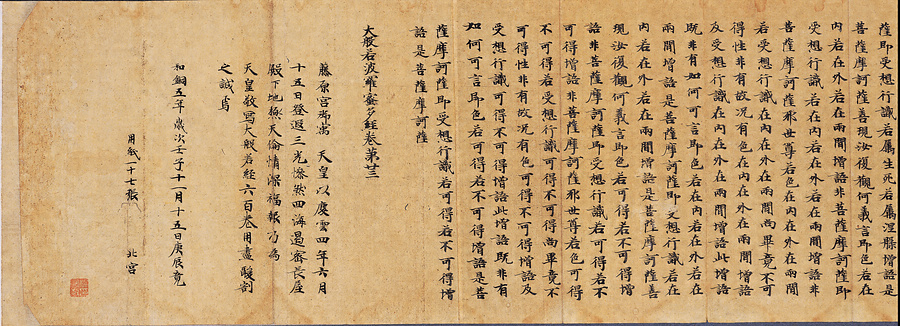 薩即受想行識若屬生死若屬涅槃增語是
菩薩摩訶薩善現汝復觀何義言即色若在
內若在外若在兩間增語非菩薩摩訶薩即
受想行識若在內若在外若在兩間增語非
菩薩摩訶薩耶世尊若色在內在外在兩間
若受想行識在內在外在兩間尚畢竟不可
得性非有故況有色在內在外在兩間增語
及受想行識在內在外在兩間增語此增語
既非有如何可言即色若在內若在外若在
兩間增語是菩薩摩訶薩即受想行識若在
內若在外若在兩間增語是菩薩摩訶薩善
現汝復觀何義言即色若可得若不可得增
語非菩薩摩訶薩即受想行識若可得若不
可得增語非菩薩摩訶薩耶世尊若色可得
不可得若受想行識可得不可得尚畢竟不
可得性非有故況有色可得不可得增語及
受想行識可得不可得增語此增語既非有
如何可言即色若可得若不可得增語是菩
薩摩訶薩即受想行識若可得若不可得增
語是菩薩摩訶薩
大般若波羅蜜多經卷第廿三
藤原宮御寓 天皇以慶雲四年六月
十五日登遐三光慘然四海遏密長屋
殿下地極天倫情深福報乃為
天皇敬寫大般若經六百卷用盡酸割
之誠焉
和銅五年歲次壬子十一月十五日庚辰竟
用紙一十七張 北宮